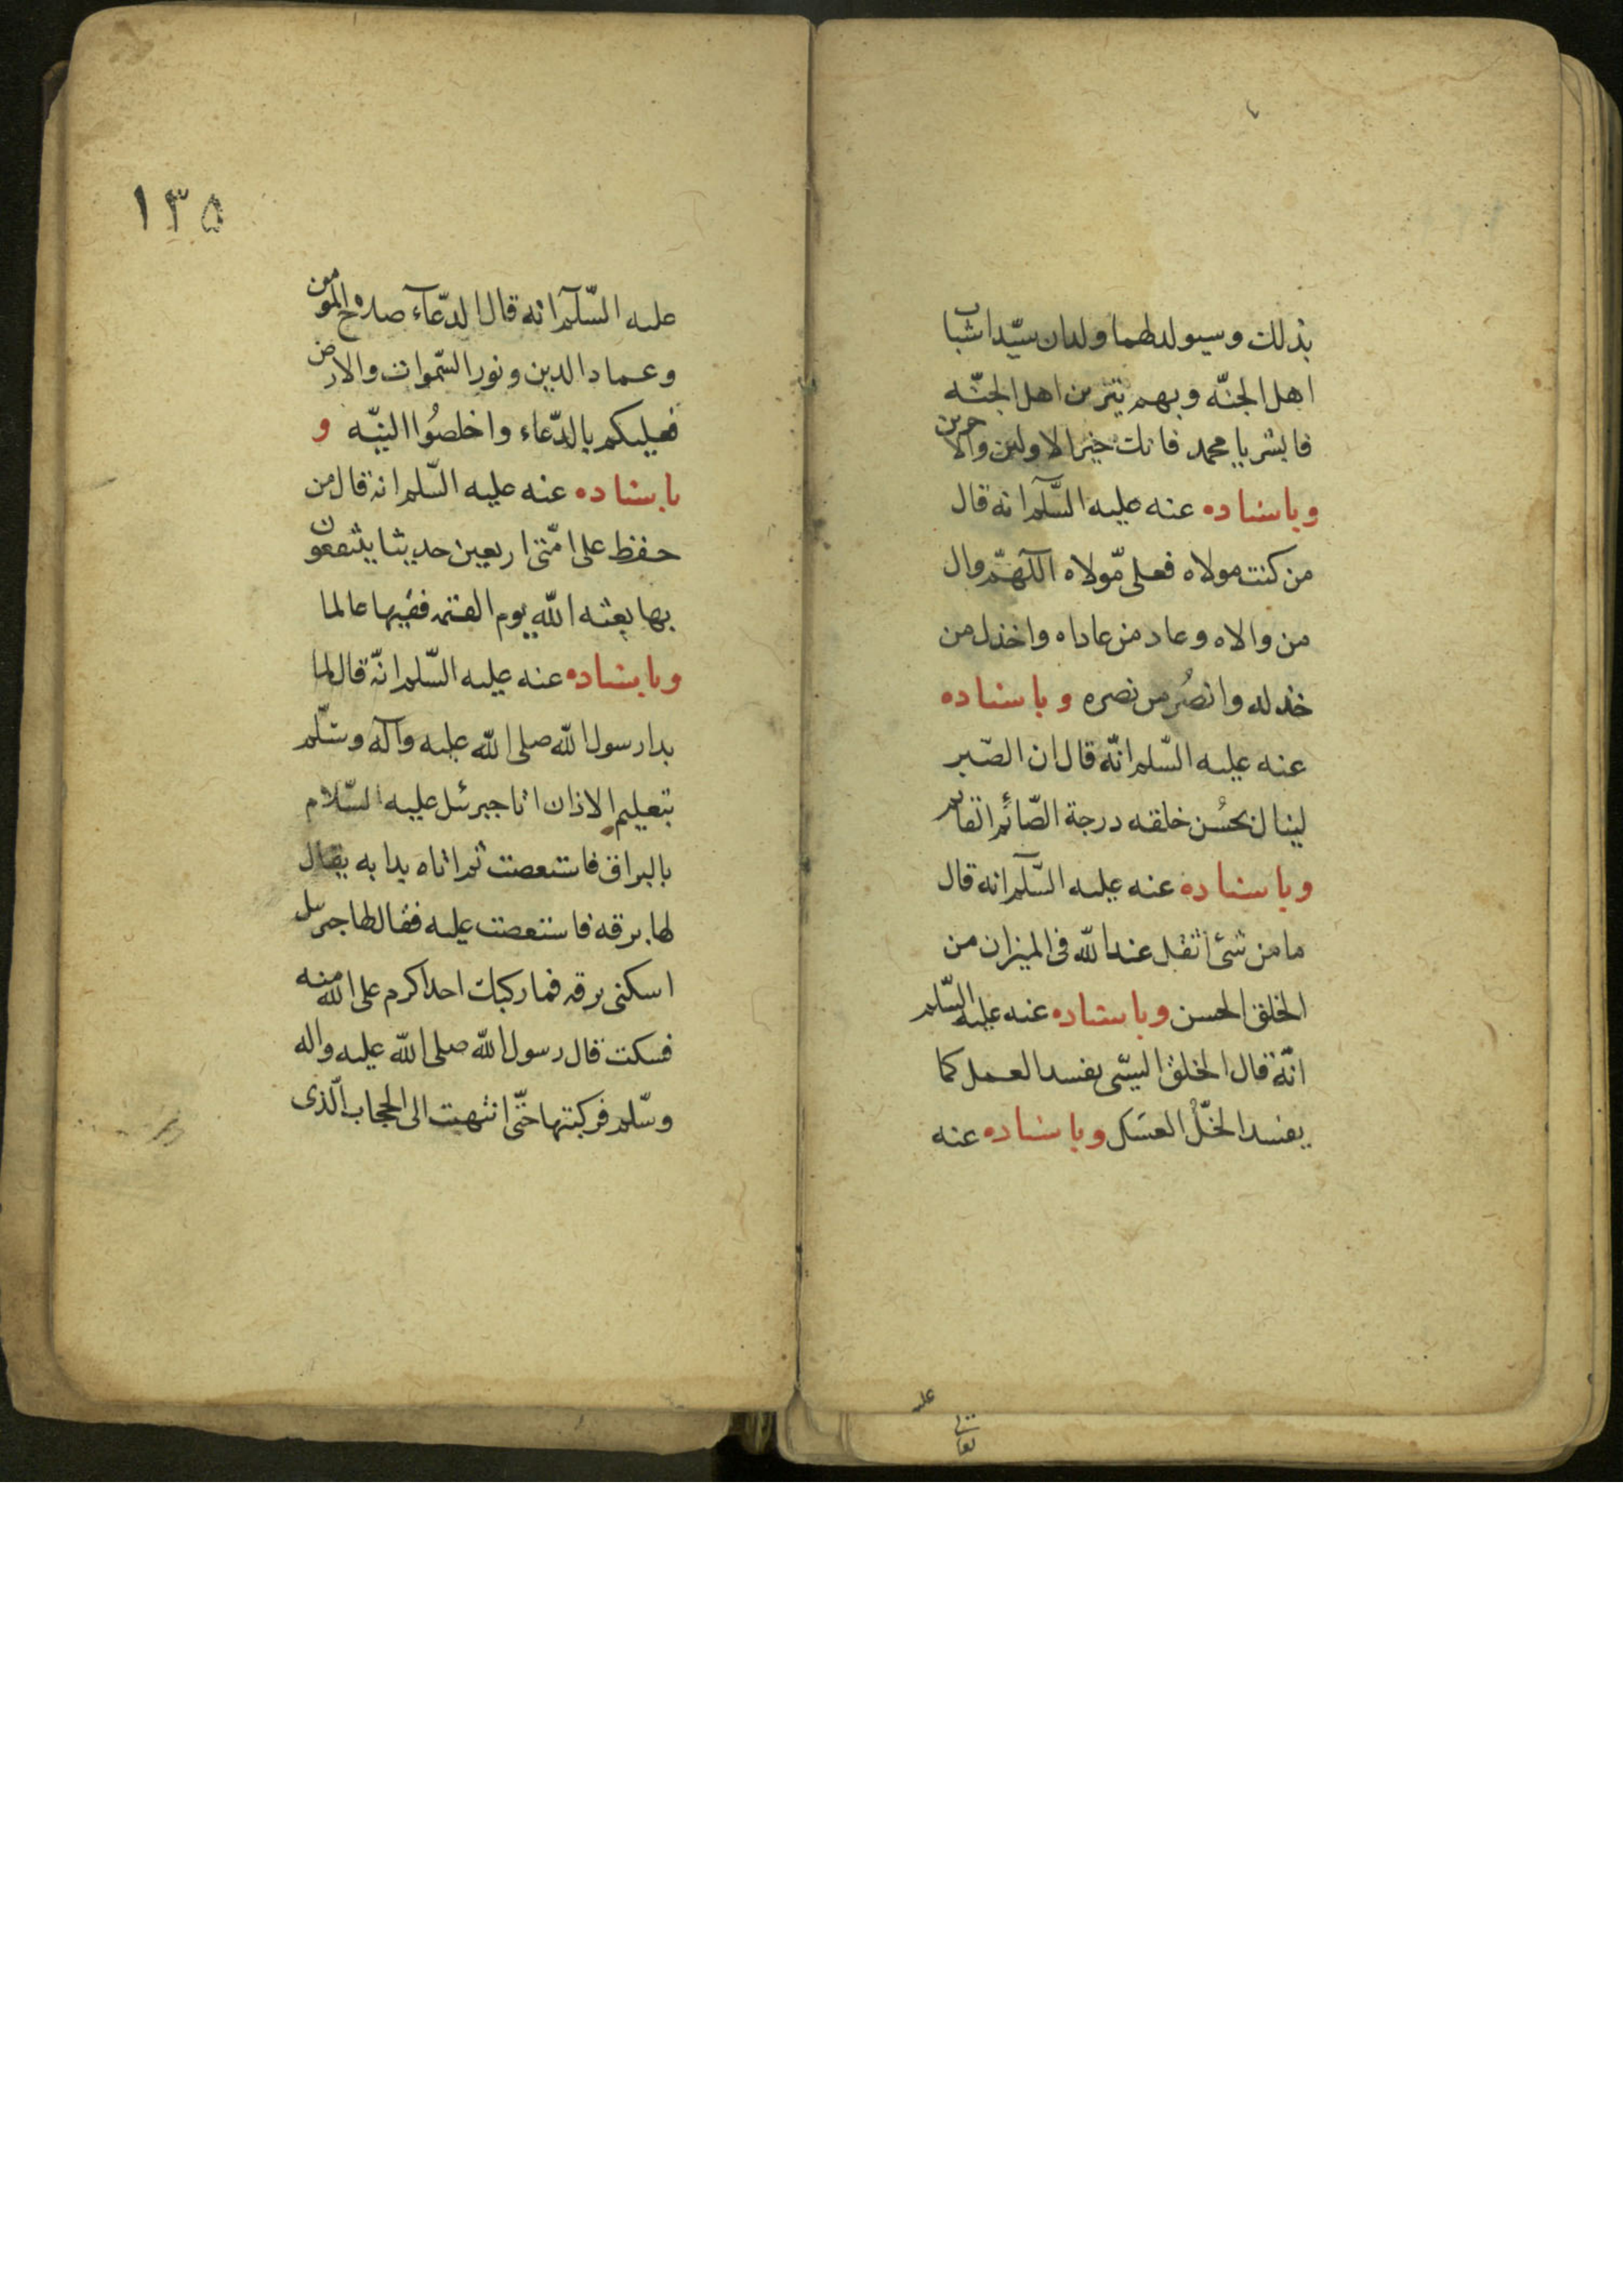 بذلك وسيولد لهما ولدان سيّدا شباب
اهل الجنّه وبهم يتزين اهل الجنّه
فابشر يا محمد فانك خير الاولين والاخرين
وباسناده عنه عليه السّلم انه قال
من كنت مولاه فعلى مّولاه اللهمّ وال
من والاه وعاد من عاداه واخذل من
خذله وانصُر من نصره وباسناده
عنه عليه السّلم انّه قال ان الصّبر
لينال بحسُن خلقه درجة الصّائم القايم
وباسناده عنه عليه السّلم انه قال
ما من شئ اثقل عند الله فى الميزان من
الخلق الحسن وباسناده عنه عليه السّلم
انّه قال الخلق السيّى يفسد العمل كما
يفسد الخلّ العسَل وباسناده عنه
عليه
١٣٥
عليه السّلم انه قال الدّعآء صلاح المومن
وعماد الدين ونور السّموات والارض
فعليكم بالدّعاء واخلصُوا النيّه و
باسناده عنه عليه السّلم انه قال من
حفظ على امّتى اربعين حديثا ينتفعون
بها بعثه الله يوم القيمه فقيها عالما
وباسناده عنه عليه السّلم انّه قال لما
بدا رسول الله صلى الله عليه وآله وسّلم
بتعليم الاذان اتا جبرئل عليبه السّلام
بالبراق فاستعصت ثم اتاه بدابه يقال
لها برقه فاستعصت عليه فقال لها جبرئل
اسكنى برقه فما ركبك احد اكرم على الله منه
فسكت قال رسول الله صلى الله عليه واله
وسّلم فركبتها حتّى انتهيت الى الحجاب الّذى